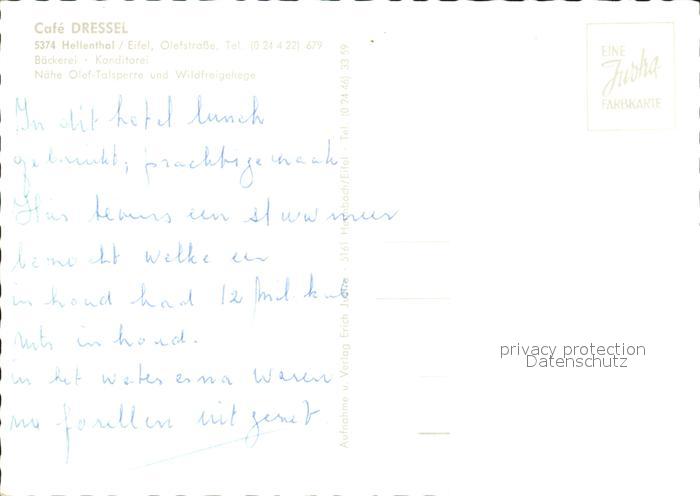 Café DRESSEL
5374 Hellenthal / Eifel, Olefstraße, Tel. (0 24 4 22) 679
Bäckerei · Konditorei
Nähe Olef-Talsperre und Wildfreigehege
In dit hotel lunch
gebruikt, prachtige
Hier tevens een stuwmeer
bezocht welke een
inhoud had 12 mil. kub
mts inhoud.
in het water waren
nu forellen uitgezet
Aufnahme u. Verlag Erich Justra · 5161 Hambach/Eifel · Tel. (0 24 46) 33 59
EINE
Justra
FARBKARTE
privacy protection
Datenschutz